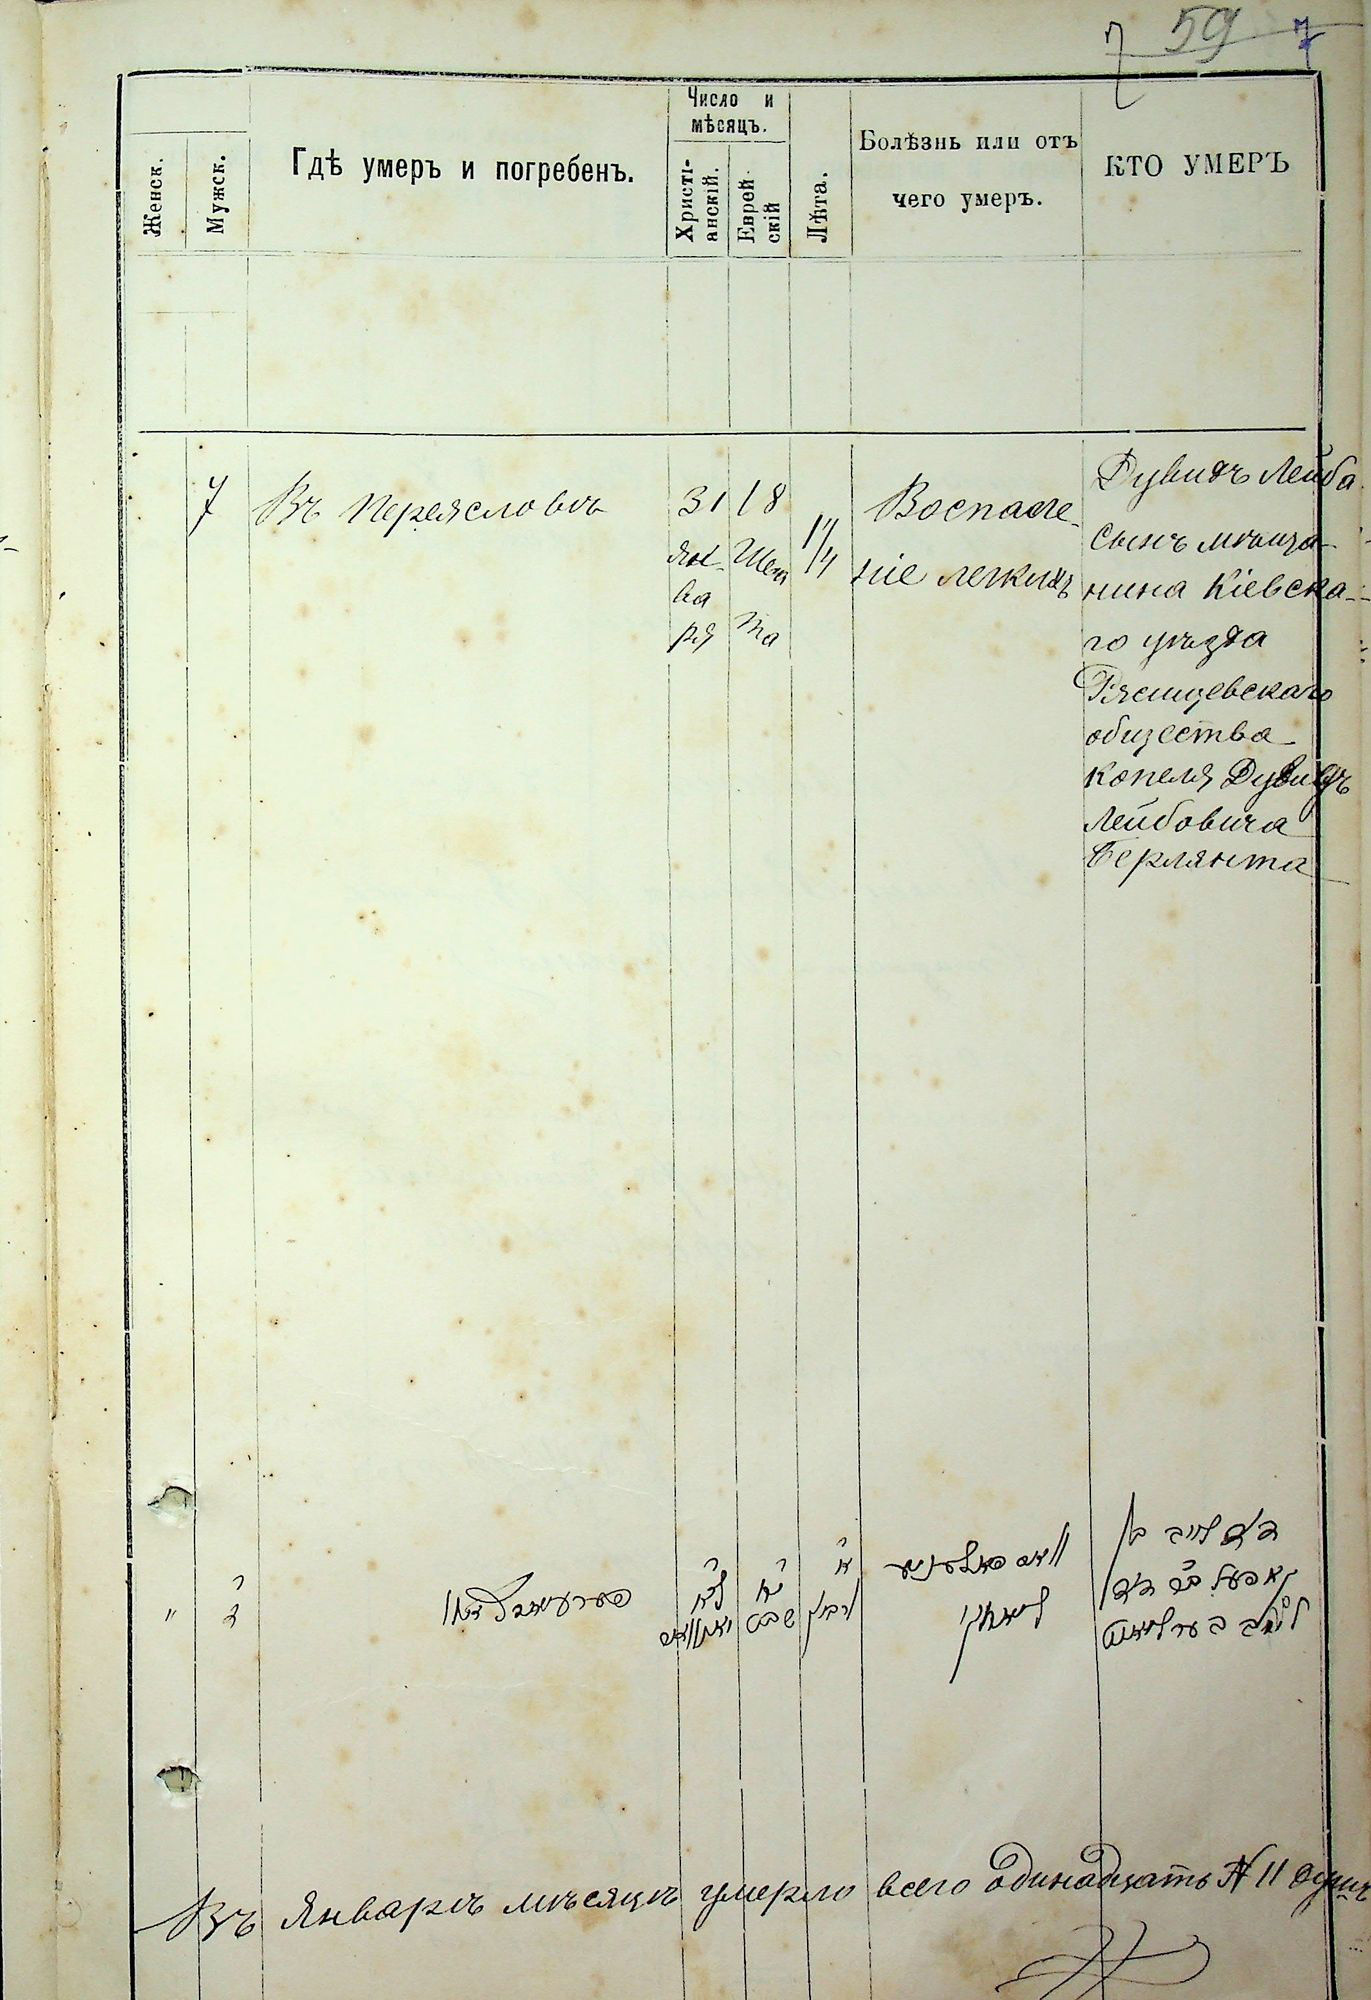 7 59 7
Женск.
Мужск.
Гдѣ умеръ и погребенъ.
Число и
мѣсяцъ.
Христі-
анскій.
Еврей-
скій
Лѣта.
Болѣзнь или отъ
чего умеръ.
КТО УМЕРЪ
7
Въ Переясловѣ
31
Ян-
ва
ря
18
Шев
та
1 1/4
Воспале-
ніе легкихъ
Дувидъ Лейба
сынъ мѣща-
нина Кіевска-
го уѣзда
Ржищевскаго
общества
Копеля Дувидъ
Лейбовича
Берлянта
"
שבט
דוד לייב בן
קאפעל בר דוד
לייב בערליאנט
Въ Январѣ мѣсяцѣ умерло всего одинадцать № 11 душъ